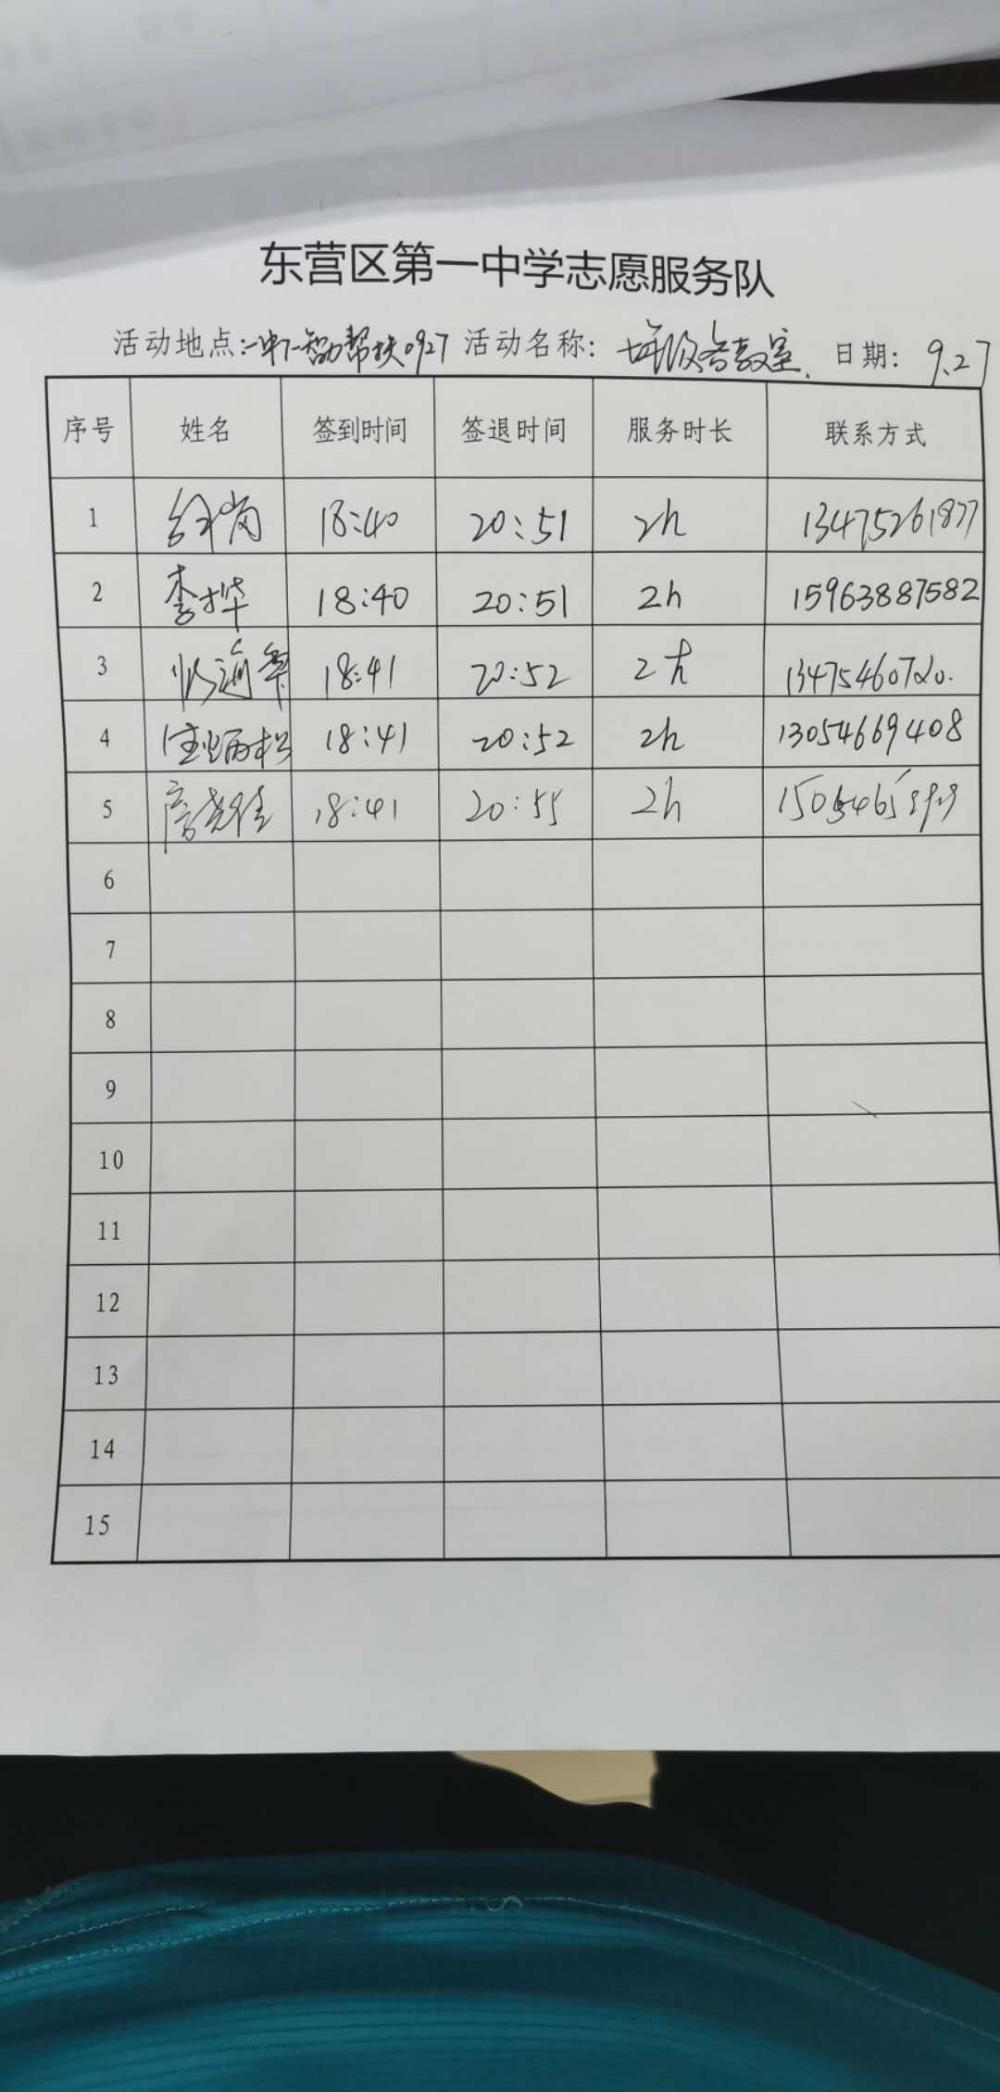 东营区第一中学志愿服务队
活动地点: 一中一智助帮扶0927 活动名称: 备教室. 日期: 9.27
序号 姓名 签到时间 签退时间 服务时长 联系方式
1 18:40 20:51 2h 13475261877
2 李桦 18:40 20:51 2h 15963887582
3 18:41 20:52 2h
4 18:41 20:52 2h 13054669408
5 18:41 20:55 2h
6
7
8
9
10
11
12
13
14
15